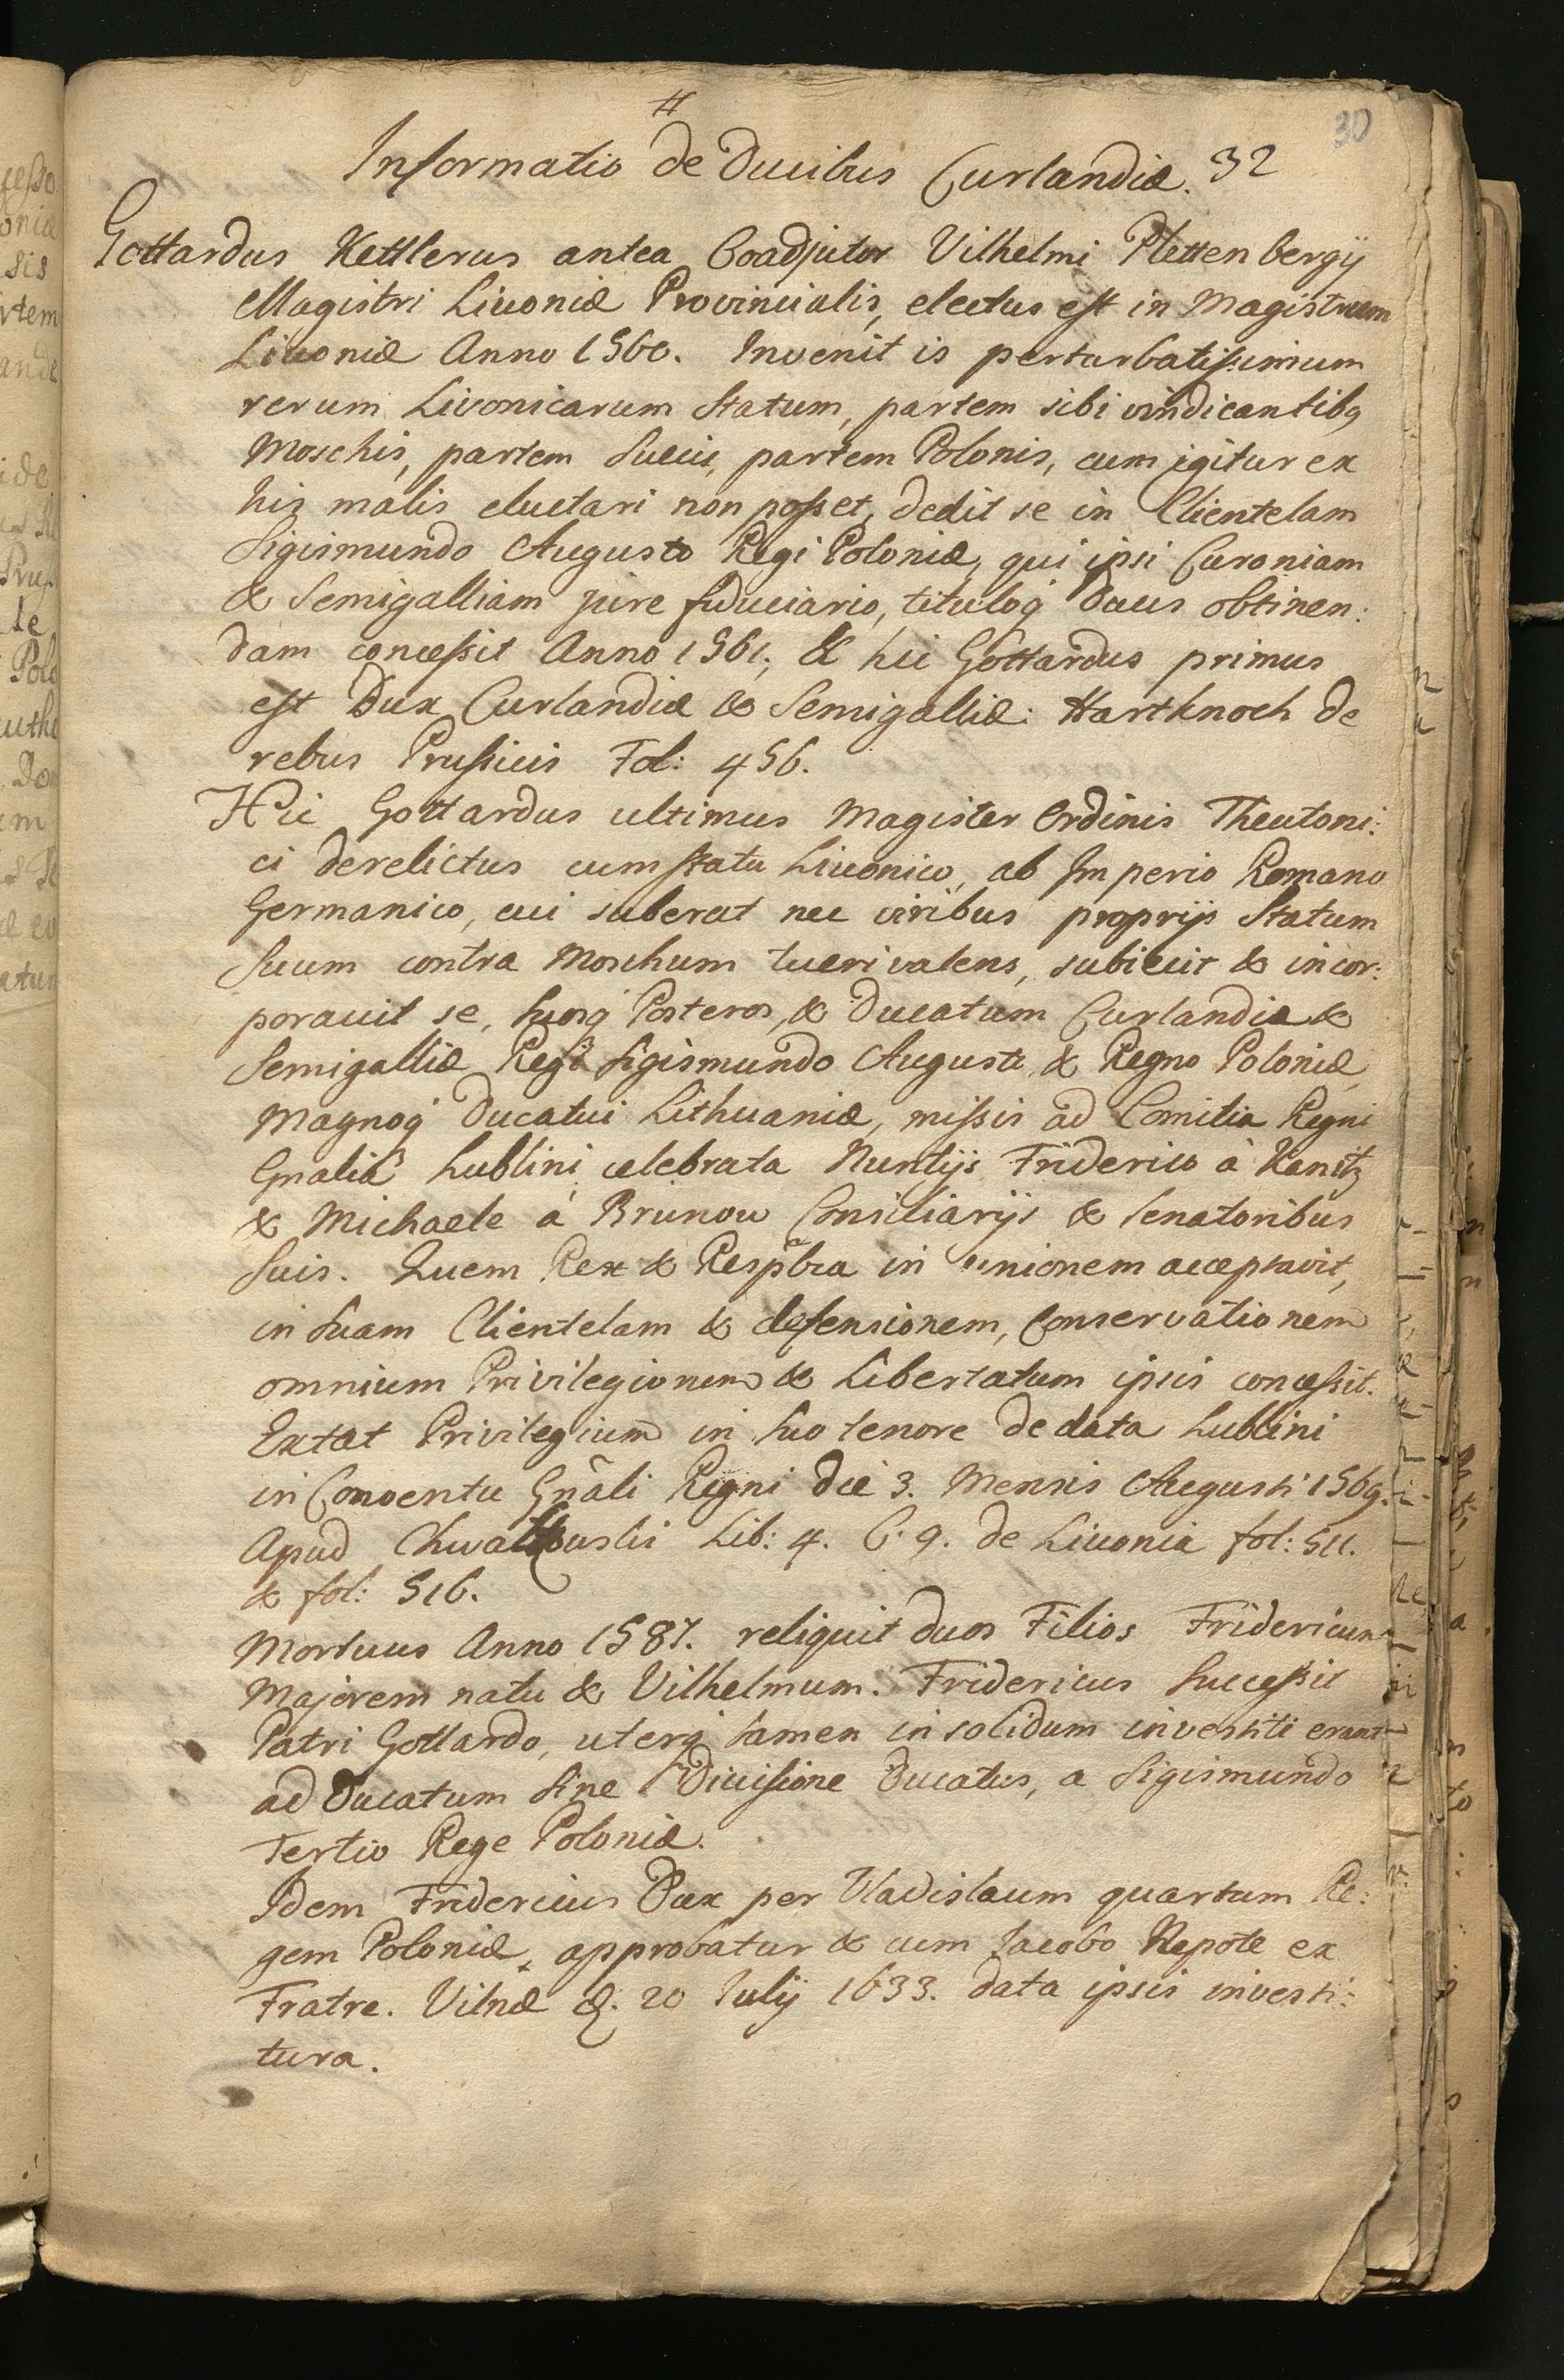 30
#
Informatio de Ducibus Curlandiæ. 32
Gottardus Kettlerus antea Coadjutor Vilhelmi Plettenbergij
Magistri Livoniæ Provincialis, electus est in Magistrum
Livoniæ Anno 1560. Invenit is perturbatissimum
rerum Livonicarum Statum, partem sibi vindicantibq
Moschis, partem Suecis, partem Polonis, cum igitur ex
his malis eluctari non posset, dedit se in Clientelam
Sigismundo Augusto Regi Poloniæ, qui ipsi Curoniam
& Semigalliam jure fiduciario, tituloq Ducis obtinen:
dam concessit Anno 1561; & hic Gottardus primus
est Dux Curlandiæ & Semigalliæ: Hartknoch de
rebus Prussicis Fol: 456.
Hic Gottardus ultimus Magister Ordinis Theutoni:
ci derelictus cum statu Livonico, ab Imperio Romano
Germanico, cui suberat nec viribus proprijs Statum
Suum contra Moschum tueri valens, subiecit & incor:
poravit se, suosq Posteros, & Ducatum Curlandiæ &
Semigalliæ Regi Sigismundo Augusto & Regno Poloniæ,
Magnoq Ducatui Lithuaniæ, missis ad Comitia Regni
Gnalia Lublini celebrata Nuntijs Friderico à Kanitz
& Michaele à Brunow Consiliarijs & Senatoribus
Suis. Quem Rex & Respbca in unionem acceptavit,
in Suam Clientelam & defensionem, Conservationem
omnium Privilegiorum & Libertatum ipsis concessit.
Extat Privilegium in suo tenore de data Lublini
in Conventu Gnãli Regni die 3. Mensis Augusti 1569.
Apud Chwalkouski Lib: 4. C. 9. de Livonia fol: 511.
& fol: 516.
Mortuus Anno 1587. reliquit duos Filios Fridericum
Majorem natu & Vilhelmum. Fridericus Successit
Patri Gottardo, uterq tamen in solidum investiti erant
ad Ducatum Sine Divisione Ducatus, a Sigismundo
Tertio Rege Poloniæ.
Idem Fridericus Dux per Vladislaum quartum Re:
gem Poloniæ, approbatur & cum Jacobo Nepote ex
Fratre. Vilnæ d. 20 Julij 1633. data ipsis investi:
tura.